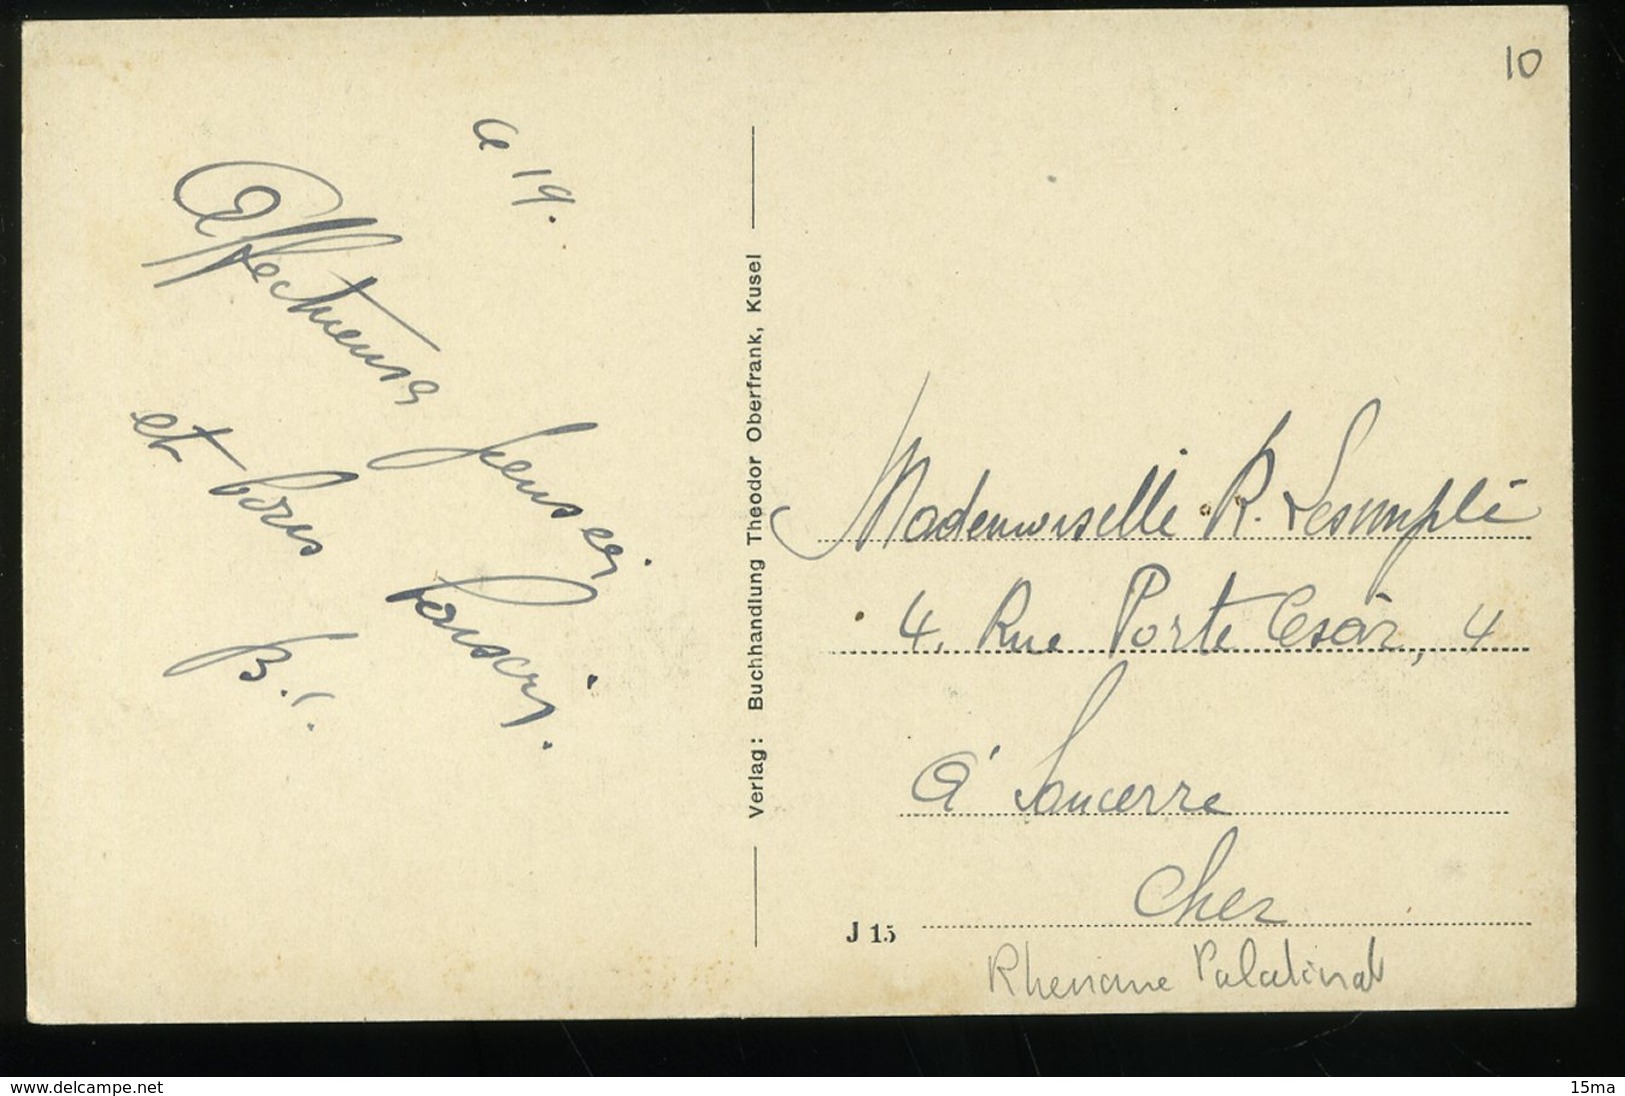 10
Ce 19.
Affectueuses pensées
et bons baisers.
B. C.
Verlag: Buchhandlung Theodor Oberfrank, Kusel
Mademoiselle R. Lesimplé
4, Rue Porte César, 4
à Sancerre
Cher
J 15
Rhenane Palatinat
www.delcampe.net
15ma